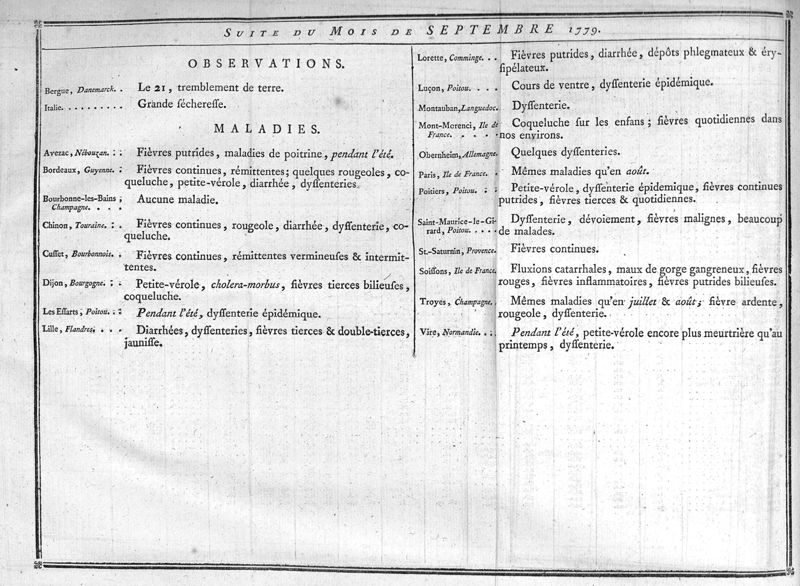 SUITE DU MOIS DE SEPTEMBRE 1779.
OBSERVATIONS.
Bergue, Danemarck. . Le 21, tremblement de terre.
Italie. . . . . . . . . . Grande sécheresse.
MALADIES.
Avezac, Nébouzan. : : Fièvres putrides, maladies de poitrine, pendant l'été.
Bordeaux, Guyenne. : : Fièvres continues, rémittentes; quelques rougeoles, co-
queluche, petite-vérole, diarrhée, dyssenteries.
Bourbonne-les-Bains, Aucune maladie.
Champagne. . . . .
Chinon, Touraine. : . Fièvres continues, rougeole, diarrhée, dyssenterie, co-
queluche.
Cusset, Bourbonnois. . Fièvres continues, rémittentes vermineuses & intermit-
tentes.
Dijon, Bourgogne. : : Petite-vérole, cholera-morbus, fièvres tierces bilieuses,
coqueluche.
Les Essarts, Poitou. . : Pendant l'été, dyssenterie épidémique.
Lille, Flandres. . . . Diarrhées, dyssenteries, fièvres tierces & double-tierces,
jaunisse.
Lorette, Comminge. . . Fièvres putrides, diarrhée, dépôts phlegmateux & éry-
sipélateux.
Luçon, Poitou. . . . . Cours de ventre, dyssenterie épidémique.
Montauban, Languedoc. Dyssenterie.
Mont-Morenci, Ile de Coqueluche sur les enfans; fièvres quotidiennes dans
France. . . . . . nos environs.
Obernheim, Allemagne. Quelques dyssenteries.
Paris, Ile de France. . Mêmes maladies qu'en août.
Poitiers, Poitou. : : Petite-vérole, dyssenterie épidemique, fièvres continues
putrides, fièvres tierces & quotidiennes.
Saint-Maurice-le-Gi- Dyssenterie, dévoiement, fièvres malignes, beaucoup
rard, Poitou. . . . . de malades.
St.-Saturnin, Provence. Fièvres continues.
Soissons, Ile de France. Fluxions catarrhales, maux de gorge gangreneux, fièvres
rouges, fièvres inflammatoires, fièvres putrides bilieuses.
Troyes, Champagne. . Mêmes maladies qu'en juillet & août; fièvre ardente,
rougeole, dyssenterie.
Vire, Normandie. . . : Pendant l'été, petite-vérole encore plus meurtrière qu'au
printemps, dyssenterie.